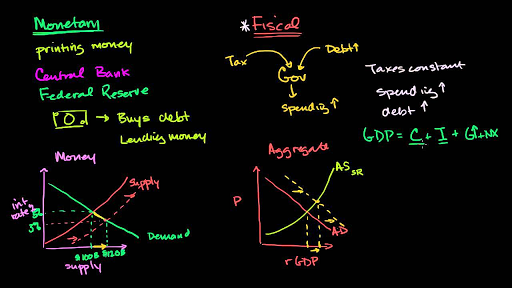 Monetary
printing money
Central Bank
Federal Reserve
Buys debt
Lending money
Money
int
rate
5%
supply
Demand
$100B $120B
supply
*Fiscal
Tax
Debt↑
Gov
spending↑
Taxes constant
spending ↑
debt ↑
GDP = C + I + G↑+NX
Aggregate
P
AS SR
AD
rGDP